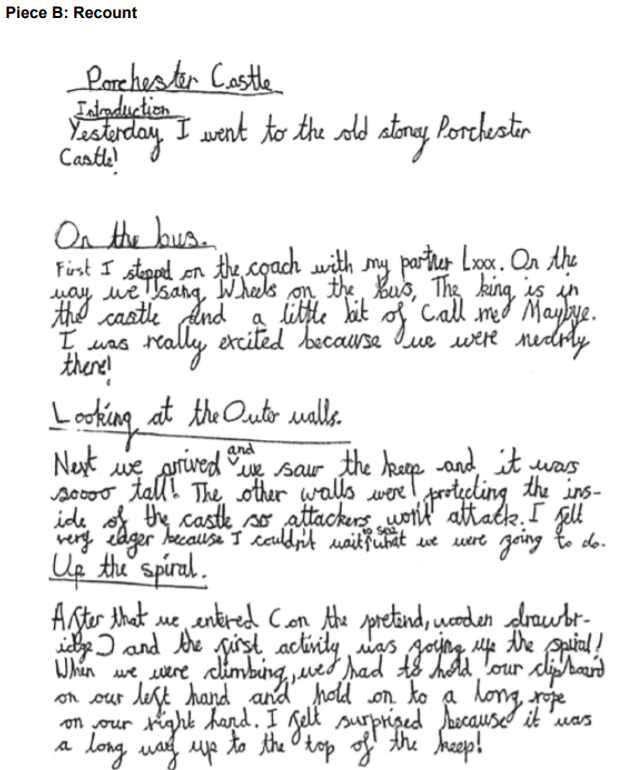 Piece B: Recount
Porchester Castle
Introduction
Yesterday I went to the old stoney Porchester
Castle!
On the bus.
First I stepped on the coach with my partner Lxxx. On the
way we sang Wheels on the bus, The king is in
the castle and a little bit of Call me Maybye.
I was really excited because we were nearly
there!
Looking at the Outer walls.
Next we arrived and we saw the keep and it was
soooo tall! The other walls were protecting the ins-
ide of the castle so attackers won't attack. I felt
very eager because I couldn't wait to see what we were going to do.
Up the spiral.
After that we entered (on the pretend, wooden drawbr-
idge) and the first activity was going up the spiral!
When we were climbing, we had to hold our clipboard
on our left hand and hold on to a long rope
on our right hand. I felt surprised because it was
a long way up to the top of the keep!